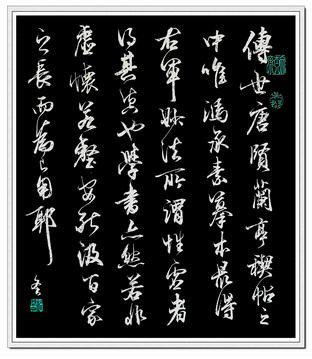 傳世唐賢蘭亭禊帖之
中唯馮承素摹本最得
右軍妙法所謂性虛者
得其真也學書亦然若非
虛懷若壑安能汲百家
之長而為己用耶